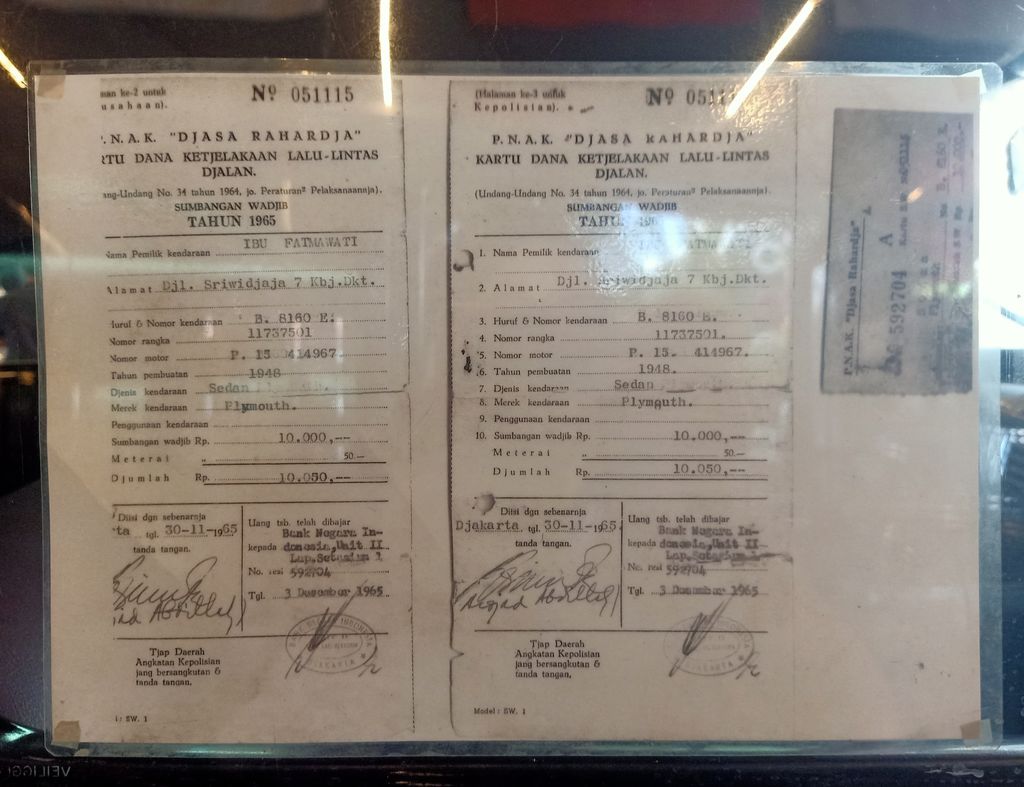 man ke-2 untuk
usahaan).
Nº 051115
P.N.A.K. "DJASA RAHARDJA"
RTU DANA KETJELAKAAN LALU-LINTAS
DJALAN.
ang-Undang No. 34 tahun 1964, jo. Peraturan² Pelaksanaannja).
SUMBANGAN WADJIB
TAHUN 1965
Nama Pemilik kendaraan IBU FATMAWATI
Alamat Djl. Sriwidjaja 7 Kbj.Dkt.
Huruf & Nomor kendaraan B. 8160 E.
Nomor rangka 11737501
Nomor motor P. 15 414967.
Tahun pembuatan 1948
Djenis kendaraan Sedan
Merek kendaraan Plymouth.
Penggunaan kendaraan
Sumbangan wadjib Rp. 10.000,--
Meterai „ 50.—
Djumlah Rp. 10.050,--
Diisi dgn sebenarnja
ta tgl. 30-11-1965
tanda tangan.
Uang tsb. telah dibajar
kepada Bank Negara In-
donesia, Unit II
No. resi 592704
Tgl. 3 Desember 1965
Tjap Daerah
Angkatan Kepolisian
jang bersangkutan &
tanda tangan.
l : SW. 1
(Halaman ke-3 untuk
Kepolisian).
Nº 0511
P.N.A.K. "DJASA RAHARDJA"
KARTU DANA KETJELAKAAN LALU-LINTAS
DJALAN.
(Undang-Undang No. 34 tahun 1964, jo. Peraturan² Pelaksanaannja).
SUMBANGAN WADJIB
TAHUN 196
1. Nama Pemilik kendaraan FATMAWATI
2. Alamat Djl. Sriwidjaja 7 Kbj.Dkt.
3. Huruf & Nomor kendaraan B. 8160 E.
4. Nomor rangka 11737501.
5. Nomor motor P. 15. 414967.
6. Tahun pembuatan 1948.
7. Djenis kendaraan Sedan
8. Merek kendaraan Plymouth.
9. Penggunaan kendaraan
10. Sumbangan wadjib Rp. 10.000,--
Meterai „ 50.—
Djumlah Rp. 10.050,--
Diisi dgn sebenarnja
Djakarta, tgl. 30-11-1965
tanda tangan.
Uang tsb. telah dibajar
kepada Bank Negara In-
donesia, Unit II
No. resi 592704
Tgl. 3 Desember 1965
Tjap Daerah
Angkatan Kepolisian
jang bersangkutan &
tanda tangan.
Model : SW. 1
P.N.A.K. "Djasa Rahardja"
A
592704
VEILIGG